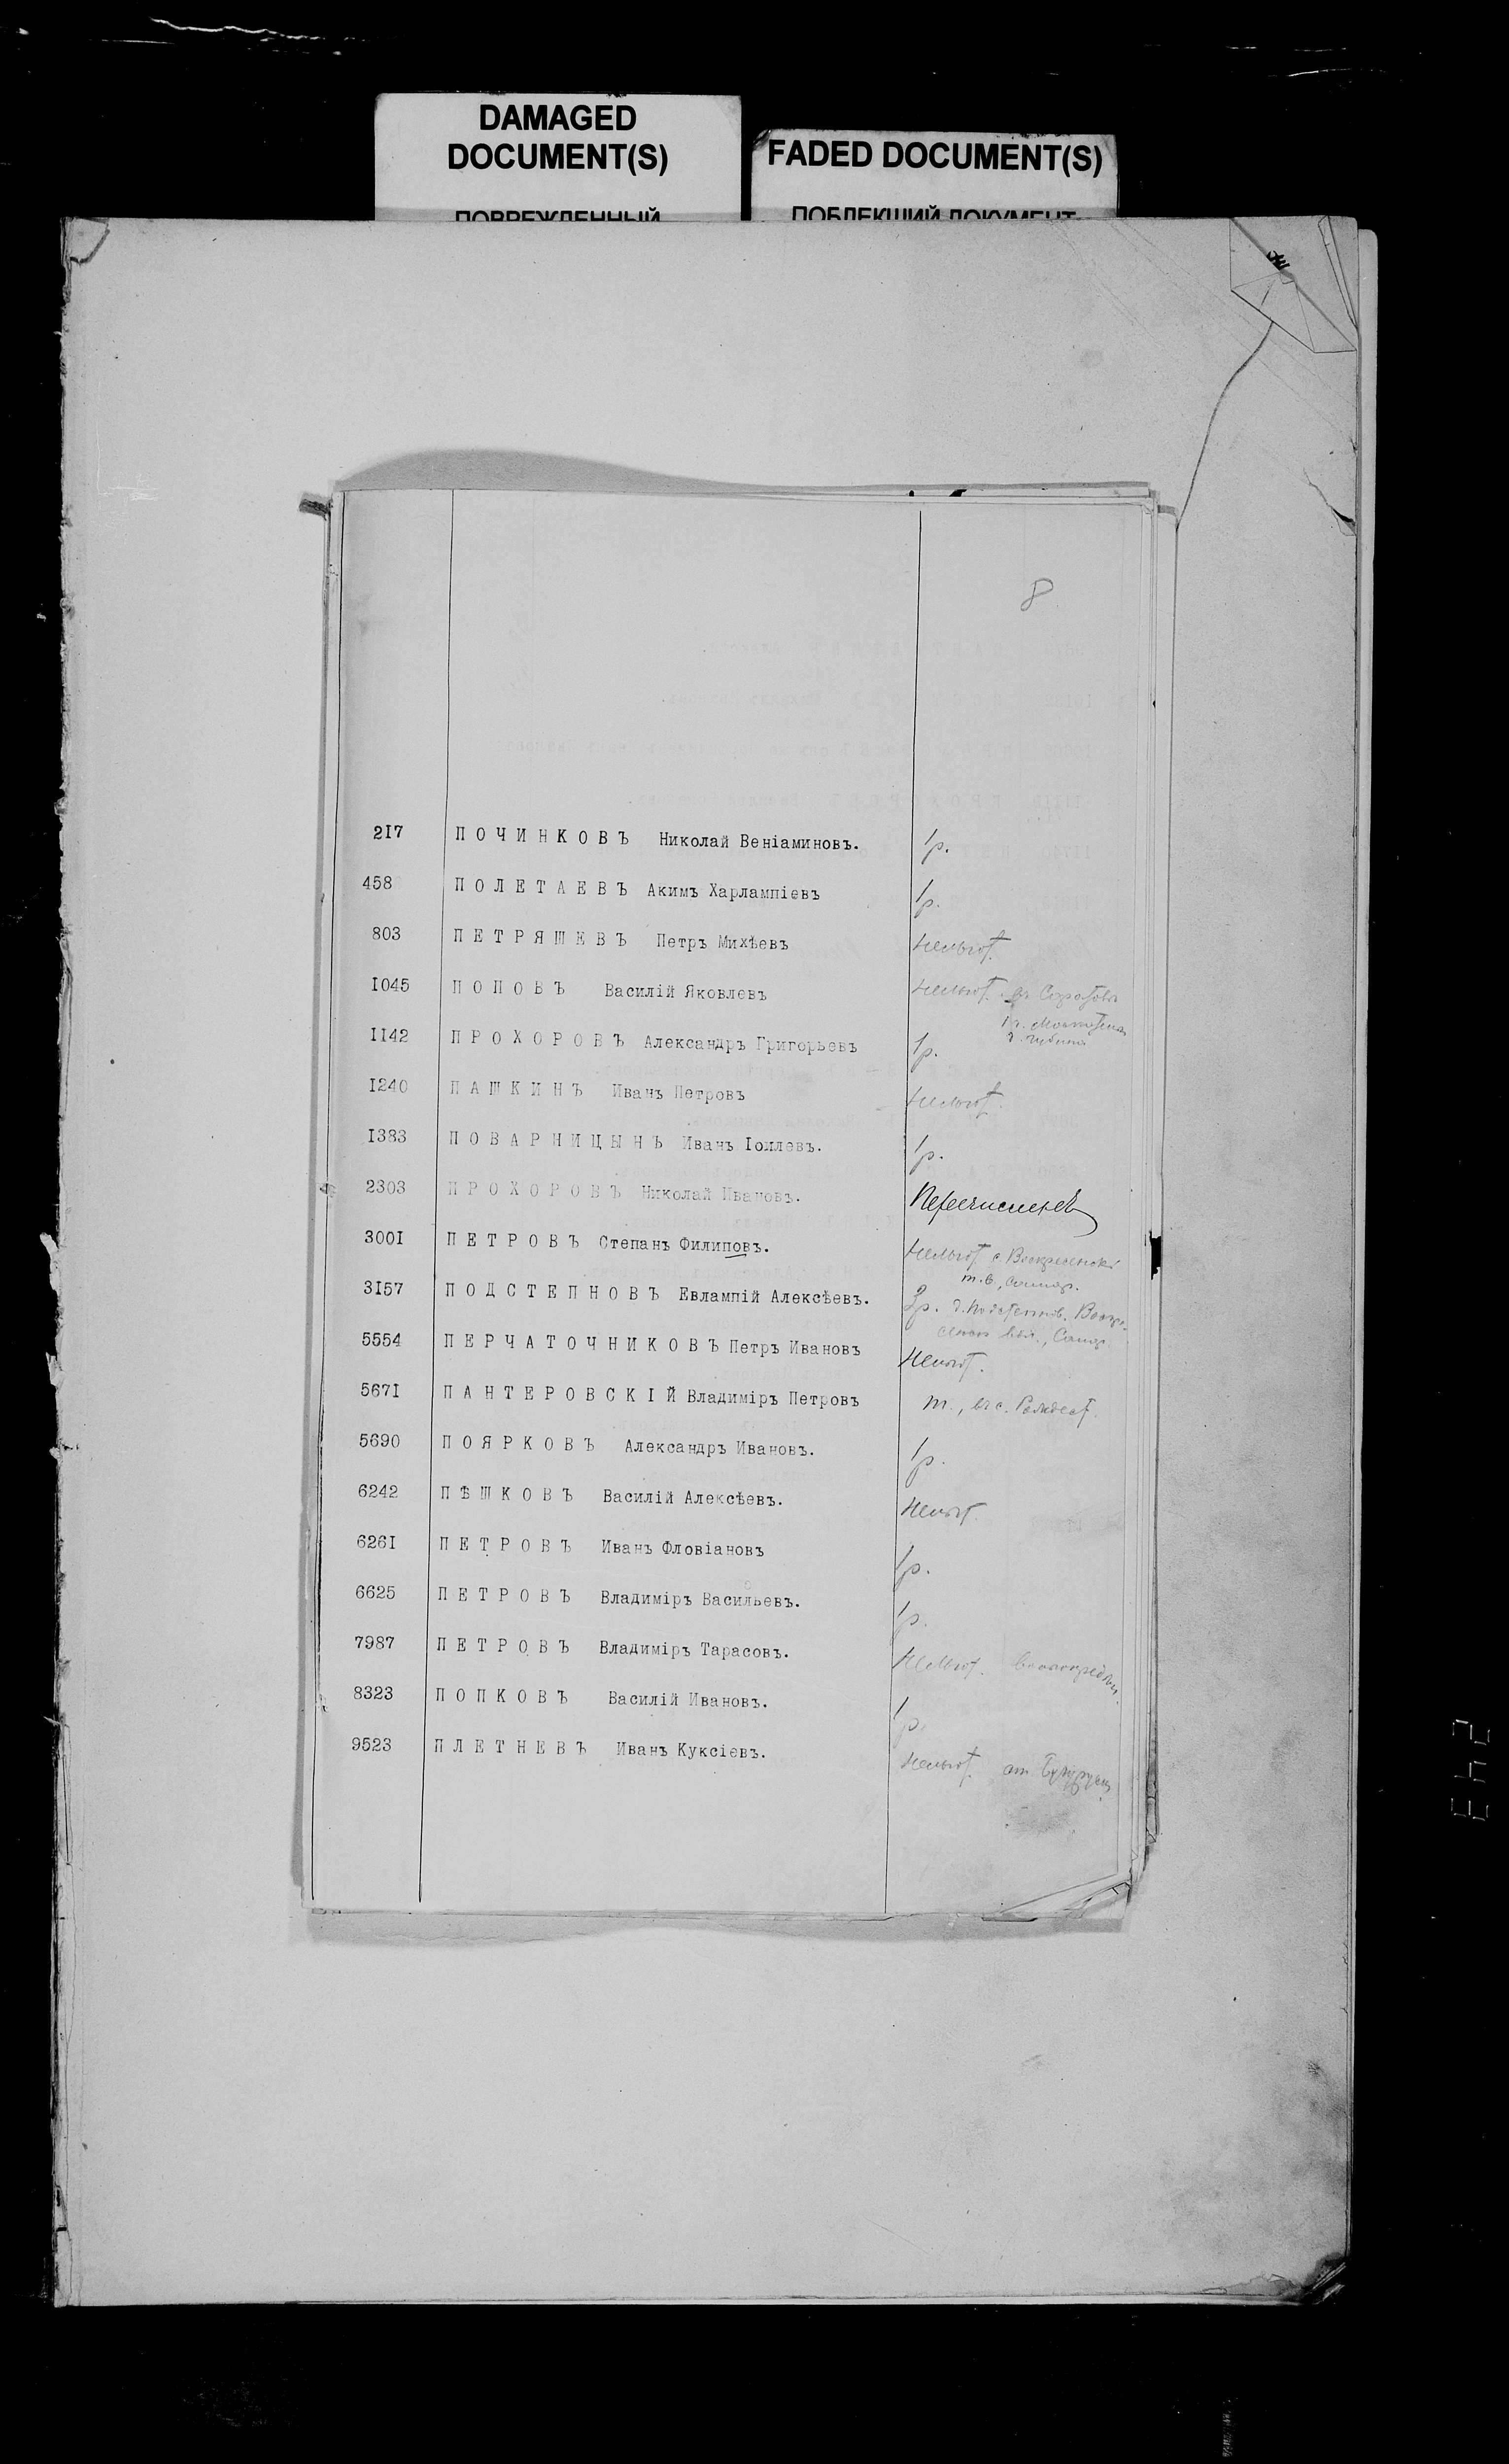 DAMAGED
DOCUMENT(S)
FADED DOCUMENT(S)
ПОВРЕЖДЕННЫЙ
ПОБЛЕКШИЙ ДОКУМЕНТ
8
217 ПОЧИНКОВЪ Николай Веніаминовъ. 1р.
458 ПОЛЕТАЕВЪ Акимъ Харлампіевъ 1р.
803 ПЕТРЯШЕВЪ Петръ Михѣевъ Нельгот.
1045 ПОПОВЪ Василій Яковлевъ Нельгот.
1142 ПРОХОРОВЪ Александръ Григорьевъ 1р.
1240 ПАШКИНЪ Иванъ Петровъ Нельгот.
1383 ПОВАРНИЦЫНЪ Иванъ Іоилевъ. 1р.
2303 ПРОХОРОВЪ Николай Ивановъ. Перечисленъ
3001 ПЕТРОВЪ Степанъ Филиповъ. Нельгот с.
3157 ПОДСТЕПНОВЪ Евлампій Алексѣевъ. 2р.
5554 ПЕРЧАТОЧНИКОВЪ Петръ Ивановъ Нельгот.
5671 ПАНТЕРОВСКІЙ Владиміръ Петровъ
5690 ПОЯРКОВЪ Александръ Ивановъ. 1р.
6242 ПѢШКОВЪ Василій Алексѣевъ. Нельгот
6261 ПЕТРОВЪ Иванъ Фловіановъ 1р.
6625 ПЕТРОВЪ Владиміръ Васильевъ. 1р.
7987 ПЕТРОВЪ Владиміръ Тарасовъ. Нельгот.
8323 ПОПКОВЪ Василій Ивановъ. 1р.
9523 ПЛЕТНЕВЪ Иванъ Куксіевъ. Нельгот.